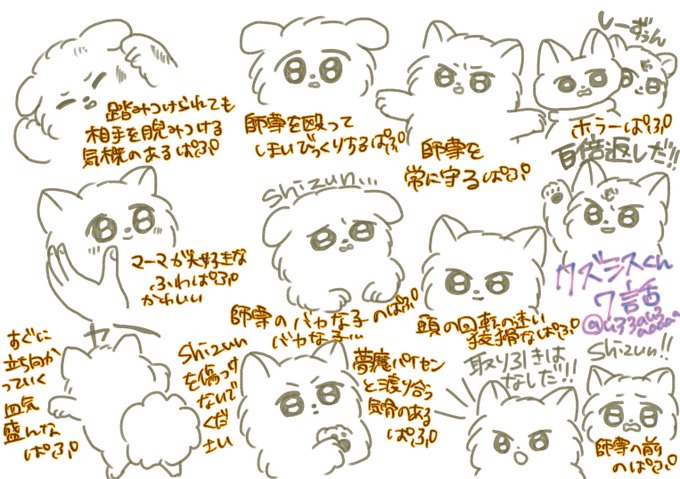 踏みつけられても
相手を睨みつける
気概のあるぱぷ
師尊を殴って
しまいびっくりするぱぷ
師尊を
常に守るぱぷ
しーずぅん
ホラーぱぷ
百倍返しだ!!
マーマが大好きな
ふわぱぷ
かわいい
shizun...
師尊のバカな子のぱぷ
バカな子…
頭の回転の速い
狡猾なぱぷ
クズシスくん
7話
すぐに
立ち向か
っていく
血気
盛んな
ぱぷ
shizun
を傷つけ
ないで
くだ
さい
夢魔パイセン
と渡り合う
気骨のある
ぱぷ
取り引きは
なしだ!!
shizun!!
師尊の前
のぱぷ